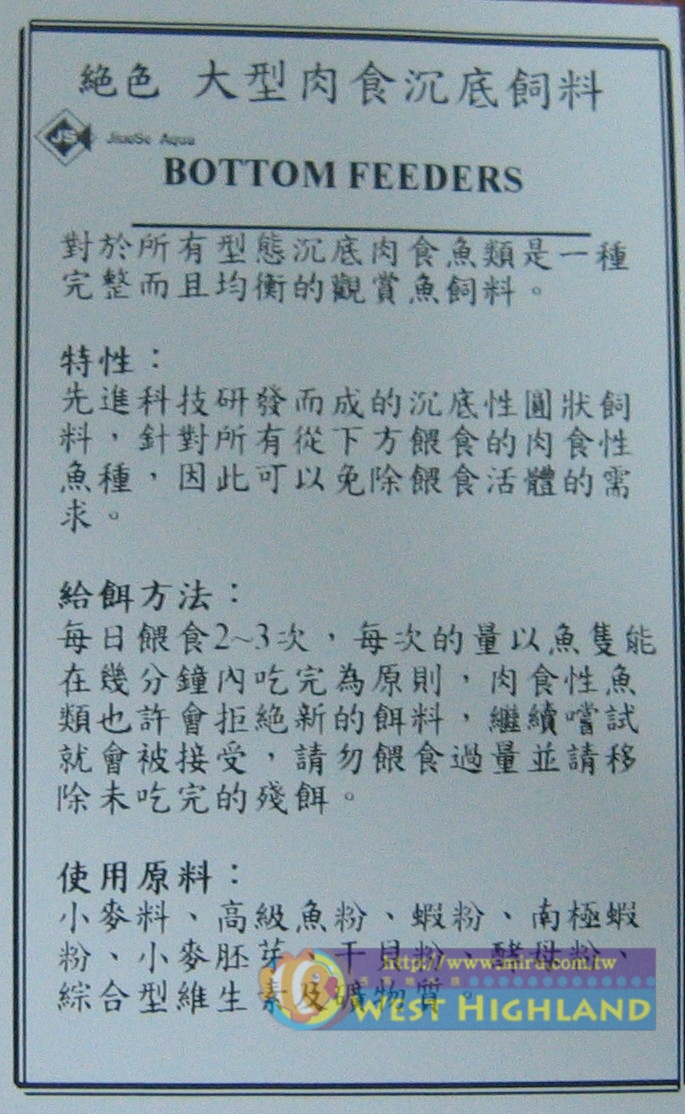 絕色 大型肉食沉底飼料
JS JiueSe Aqua
BOTTOM FEEDERS
對於所有型態沉底肉食魚類是一種
完整而且均衡的觀賞魚飼料。
特性：
先進科技研發而成的沉底性圓狀飼
料，針對所有從下方餵食的肉食性
魚種，因此可以免除餵食活體的需
求。
給餌方法：
每日餵食2~3次，每次的量以魚隻能
在幾分鐘內吃完為原則，肉食性魚
類也許會拒絕新的餌料，繼續嚐試
就會被接受，請勿餵食過量並請移
除未吃完的殘餌。
使用原料：
小麥料、高級魚粉、蝦粉、南極蝦
粉、小麥胚芽、干貝粉、酵母粉、
綜合型維生素及礦物質。
http://www.miru.com.tw
WEST HIGHLAND